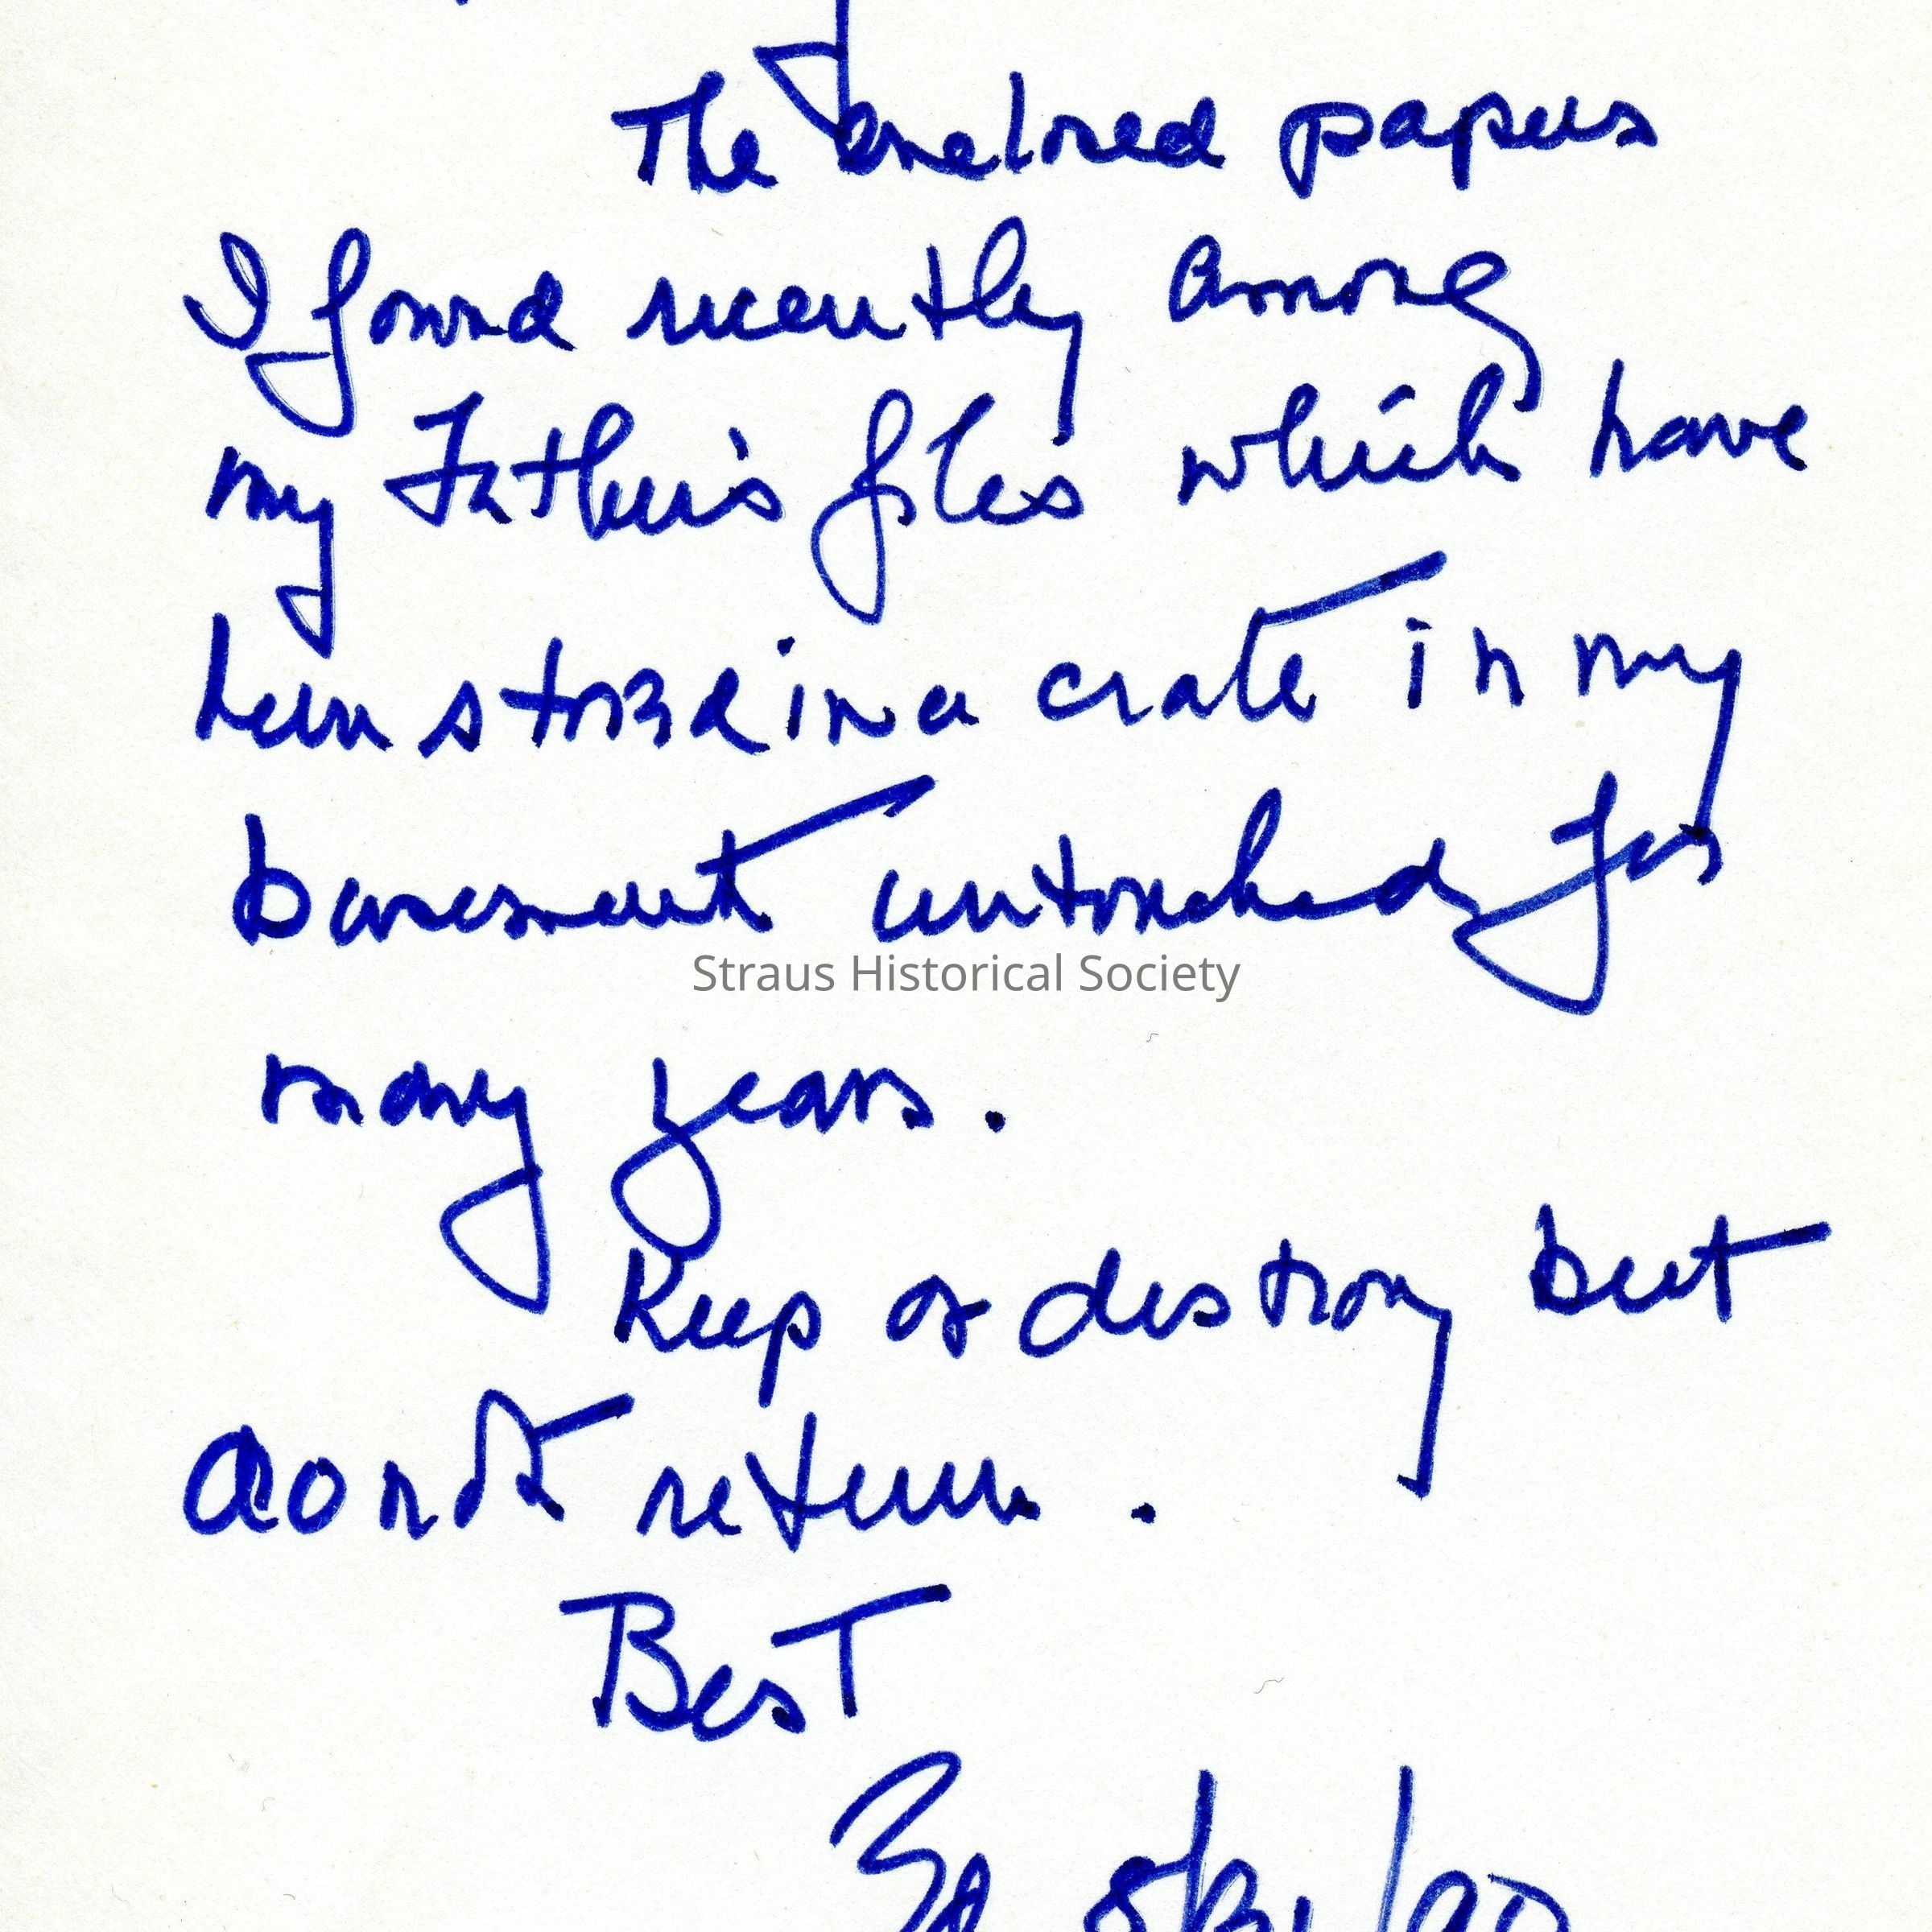 The enclosed papers
I found recently among
my Father's files which have
been stored in a crate in my
basement untouched for
Straus Historical Society
many years.
Keep or destroy but
don't return.
Best